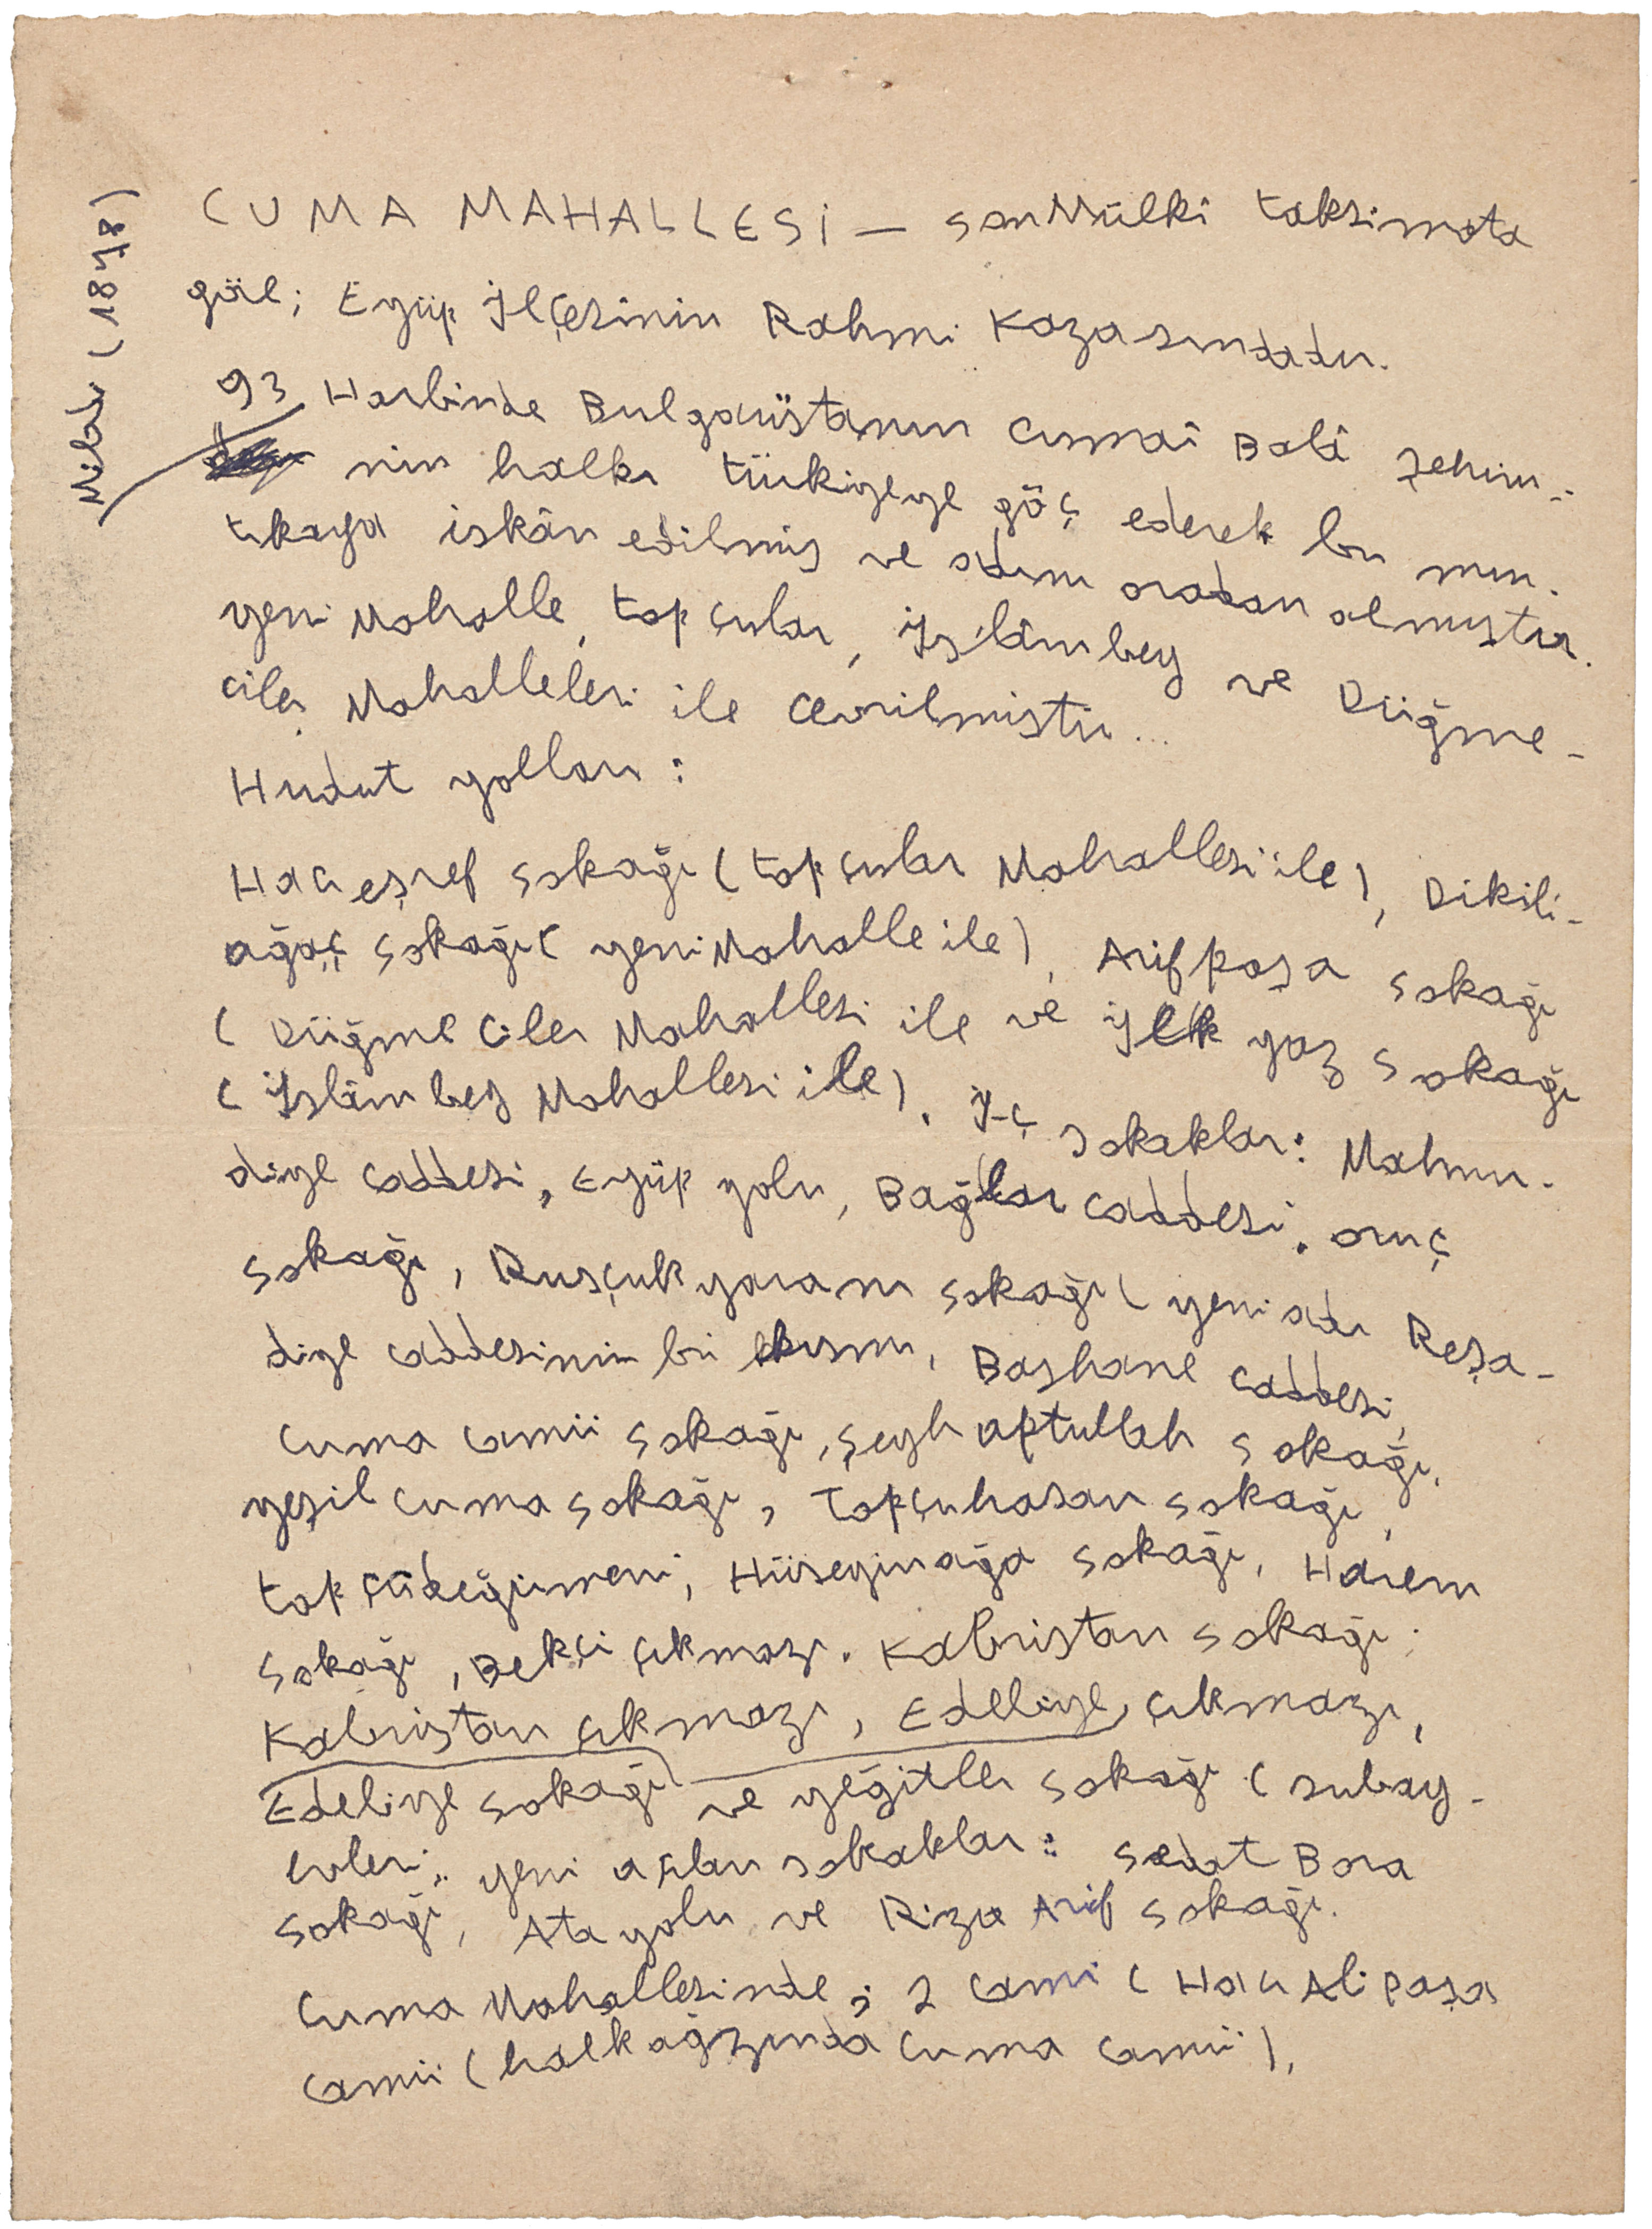 Miladi (1878)
CUMA MAHALLESİ — son Mülki taksimata
göre; Eyüp İlçesinin Rahmi Kazasındadır.
93 Harbinde Bulgaristanın Cumai Balâ şehri-
nin halkı türkiyeye göç ederek bu mın-
tıkaya iskân edilmiş ve adını oradan almıştır.
yeni Mahalle, topçular, İslâmbey ve Düğme-
ciler Mahalleleri ile çevrilmiştir...
Hudut yolları:
Hacı eşref sokağı (topçular Mahallesi ile), Dikili-
ağaç sokağı (yeni Mahalle ile), Arifpaşa sokağı
(Düğmeciler Mahallesi ile ve İlk yaz sokağı
(İslâmbey Mahallesi ile). İç sokaklar: Mahmu-
diye caddesi, Eyüp yolu, Bağlar caddesi, oruç
sokağı, Rusçuk yaranı sokağı (yeni adı Reşa-
diye caddesinin bir kısmı, Başhane caddesi,
Cuma camii sokağı, şeyh aptullah sokağı,
yeşil cuma sokağı, Topçuhasan sokağı,
topçüdeğirmeni, Hüseyinağa sokağı, Harem
sokağı, Bekçi çıkmazı. Kabristan sokağı,
Kabristan çıkmazı, Edebiye çıkmazı,
Edebiye sokağı ve yeğitler sokağı (subay-
evleri.. yeni açılan sokaklar: Sedat Bora
sokağı, Ata yolu ve Rıza Arif sokağı.
Cuma Mahallesinde; 2 cami (Hacı Ali paşa
camii (halk ağzında Cuma camii),